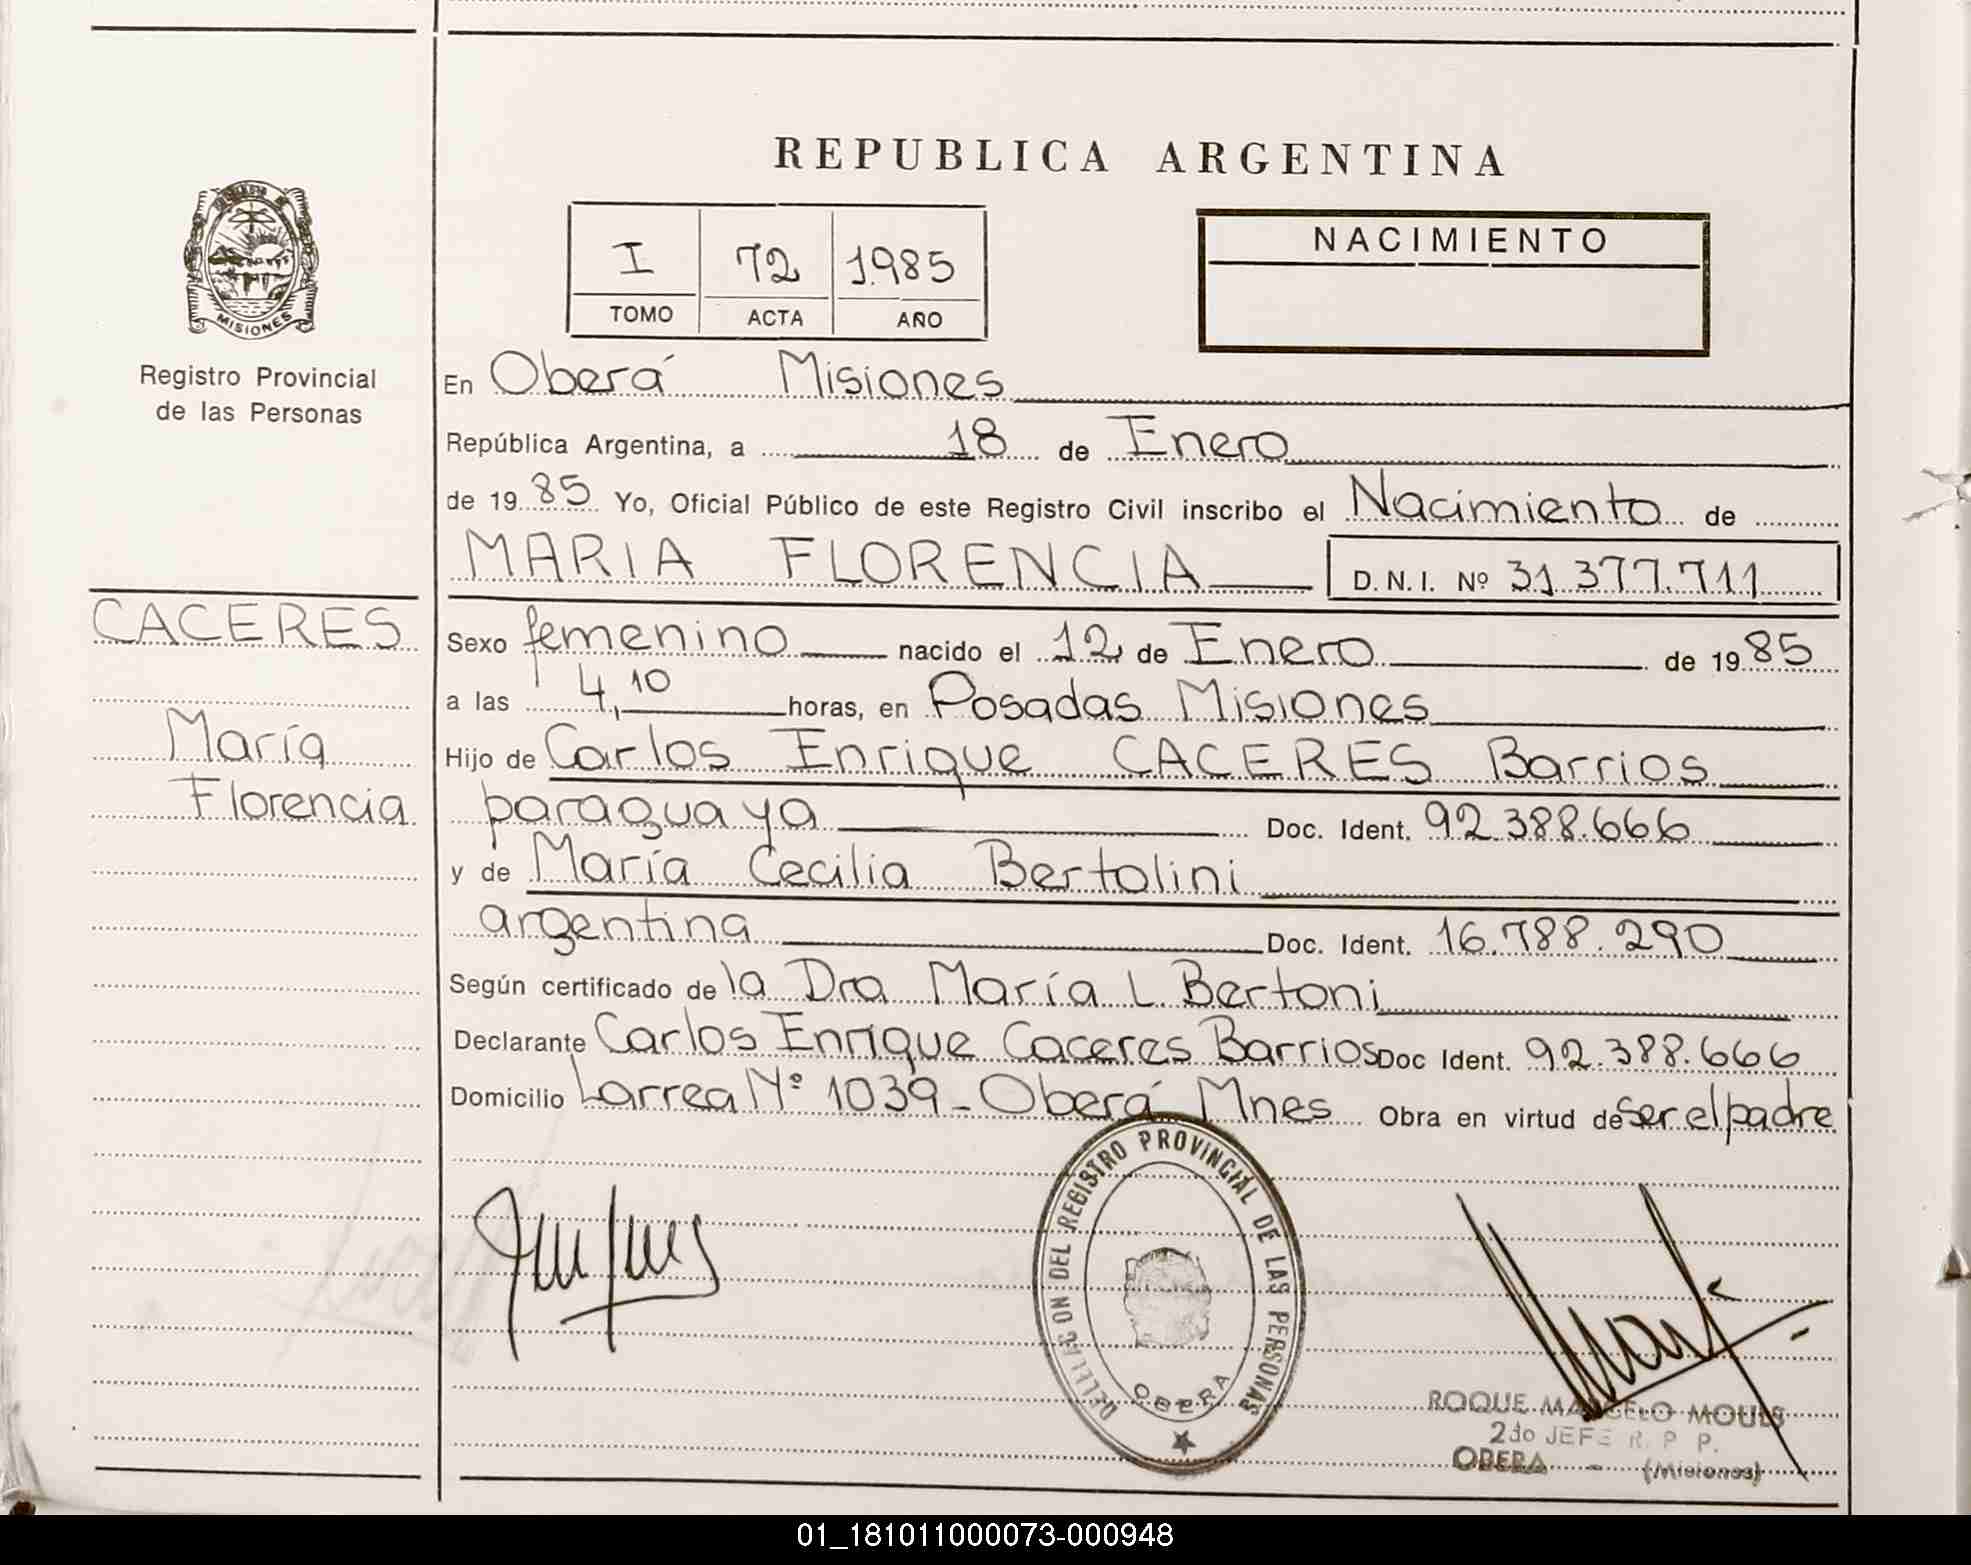 REPUBLICA ARGENTINA
MISIONES
Registro Provincial
de las Personas
I 72 1.985
TOMO ACTA AÑO
NACIMIENTO
En Oberá Misiones
República Argentina, a 18 de Enero
de 1985 Yo, Oficial Público de este Registro Civil inscribo el Nacimiento de
MARIA FLORENCIA D.N.I. Nº 31.377.711
CACERES
María
Florencia
Sexo femenino nacido el 12 de Enero de 1985
a las 4,10 horas, en Posadas Misiones
Hijo de Carlos Enrique CACERES Barrios
paraguaya Doc. Ident. 92.388.666
y de María Cecilia Bertolini
argentina Doc. Ident. 16.788.290
Según certificado de la Dra María L. Bertoni
Declarante Carlos Enrique Caceres Barrios Doc Ident. 92.388.666
Domicilio Larrea Nº 1039 - Oberá Mnes Obra en virtud de ser el padre
DELEGACION DEL REGISTRO PROVINCIAL DE LAS PERSONAS
OBERA
ROQUE MARCELO MOULS
2do JEFE R. P. P.
OBERA - (Misiones)
01_181011000073-000948